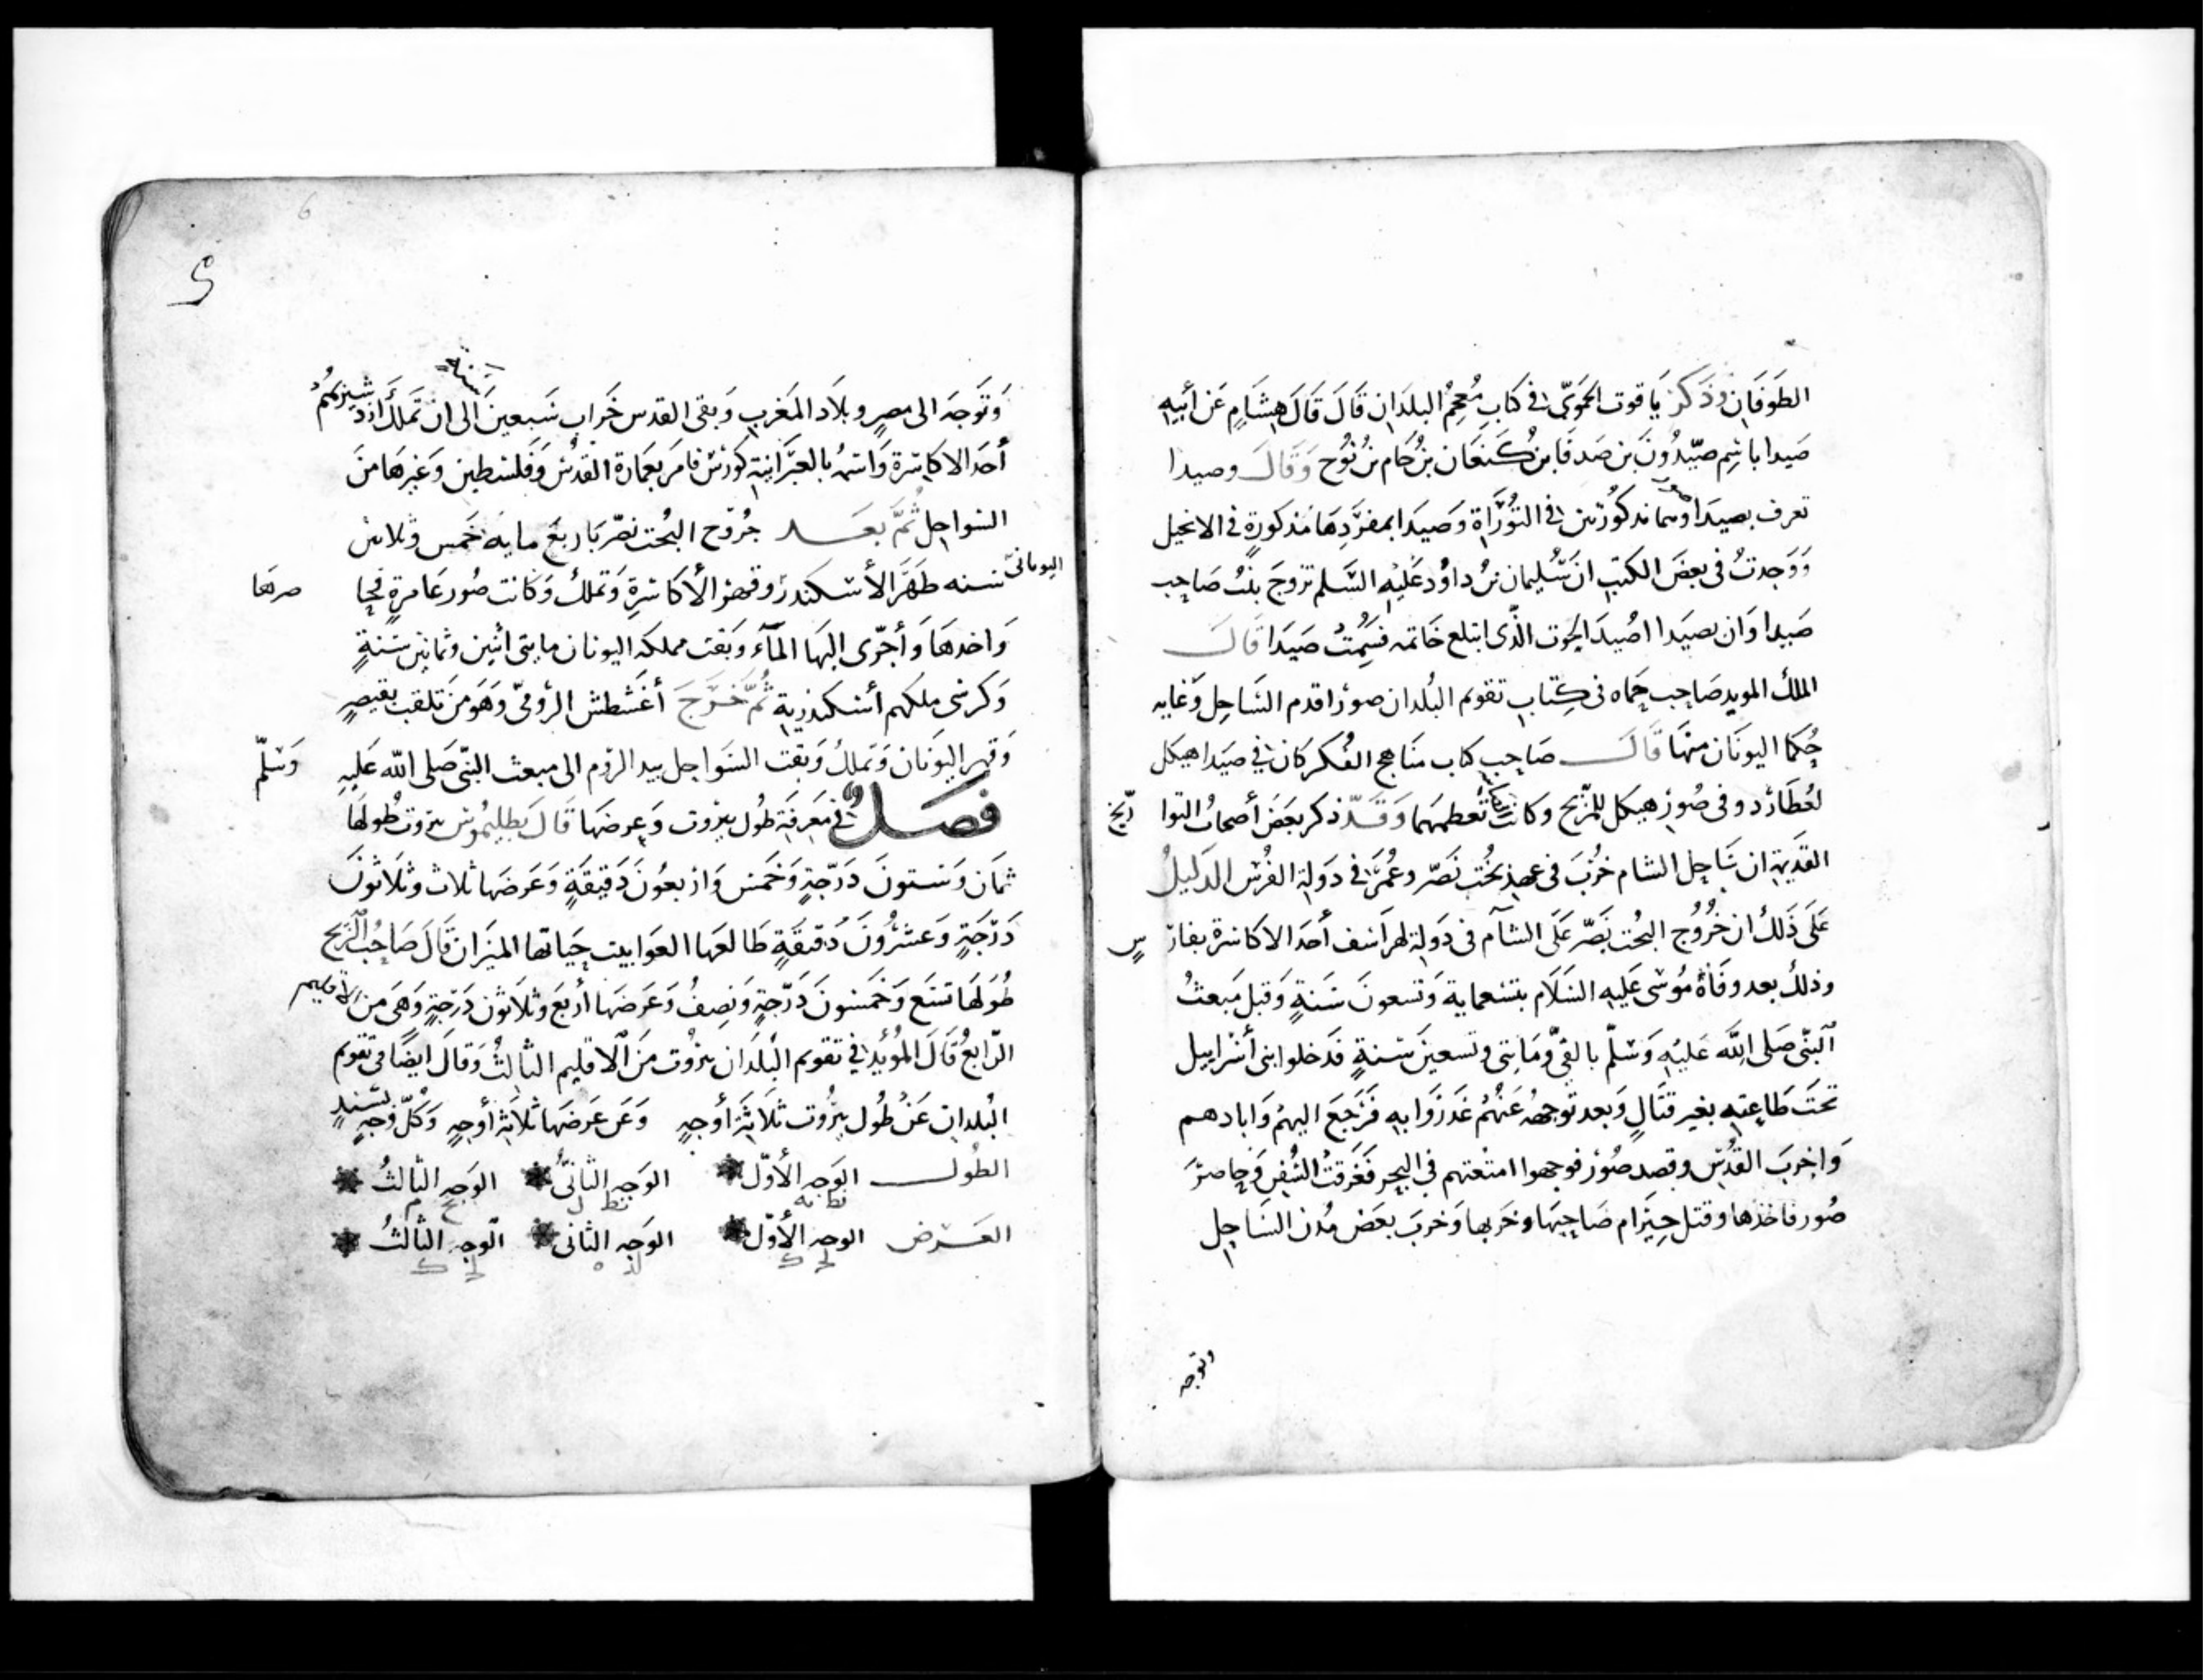 الطوفان وذكر ياقوت الحموي في كتاب معجم البلدان قال قال هشام عن أبيه
صيدا باسم صيدون بن صدقا بن كنعان بن حام بن نوح وقال وصيدا
تعرف بصيدا وصور وهما مذكورتين في التوراة وصيدا بمفردها مذكورة في الانجيل
ووجدت في بعض الكتب ان سليمان بن داود عليه السلم تزوج بنت صاحب
صيدا وان بصيدا اصيد الحوت الذي ابتلع خاتمه فسميت صيدا قال
الملك المويد صاحب حماه في كتاب تقويم البلدان صور اقدم الساحل وغايه
حكما اليونان منها قال صاحب كتاب مناهج الفكر كان في صيدا هيكل
لعطارد وفي صور هيكل للمريخ وكانت تعظمهما وقد ذكر بعض أصحاب التواريخ
القديمة ان ساحل الشام خرب في عهد بخت نصر وعمر في دولة الفرس الدليل
على ذلك ان خروج البخت نصر على الشآم في دولة لهراسف أحد الاكاسرة بفارس
وذلك بعد وفاة موسى عليه السلام بتسعماية وتسعون سنة وقبل مبعث
النبي صلى الله عليه وسلم بالفي ومايتي وتسعين سنة فدخلوا بني أسراييل
تحت طاعته بغير قتال وبعد توجهه عنهم غدروا به فرجع اليهم وابادهم
واخرب القدس وقصد صور فوجهوا امتعتهم في البحر فغرقت السفن وحاصر
صور فاخذها وقتل حيرام صاحبها وخربها وخرب بعض مدن الساحل
وتوجه
6
وتوجه الى مصر وبلاد المغرب وبقى القدس خراب سبعين سنة الى ان تملك ازدشير بهمن
أحد الاكاسرة واسمه بالعبرانية كورش فامر بعمارة القدس وفلسطين وغيرها من
السواحل ثم بعد خروج البخت نصر باربع مايه خمس وثلاثين
سنه ظهر الأسكندر اليوناني وقهر الأكاسرة وتملك وكانت صور عامرة فحاصرها
واخدها وأجرى اليها المآء وبقت مملكه اليونان مايتى أثنين وثمانين سنة
وكرسى ملكهم أسكندرية ثم خرج أغشطش الرومي وهو من تلقب بقيصر
وقهر اليونان وتملك وبقت السواحل بيد الروم الى مبعث النبي صلى الله عليه وسلم
فصل في معرفة طول بيروت وعرضها قال بطليموس بيروت طولها
ثمان وستون درجة وخمس واربعون دقيقة وعرضها ثلاث وثلاثون
درجة وعشرون دقيقة طالعها العوا بيت حياتها الميزان قال صاحب الزيج
طولها تسع وخمسون درجة ونصف وعرضها أربع وثلاثون درجة وهي من الاقليم
الرابع قال المؤيد في تقويم البلدان بيروت من الاقليم الثالث وقال ايضا في تقويم
البلدان عن طول بيروت ثلاثة أوجه وعن عرضها ثلاثة أوجه وكل وجه بسند
الطول الوجه الأول الوجه الثاني الوجه الثالث
نط نه نط ل
العرض الوجه الأول الوجه الثاني الوجه الثالث